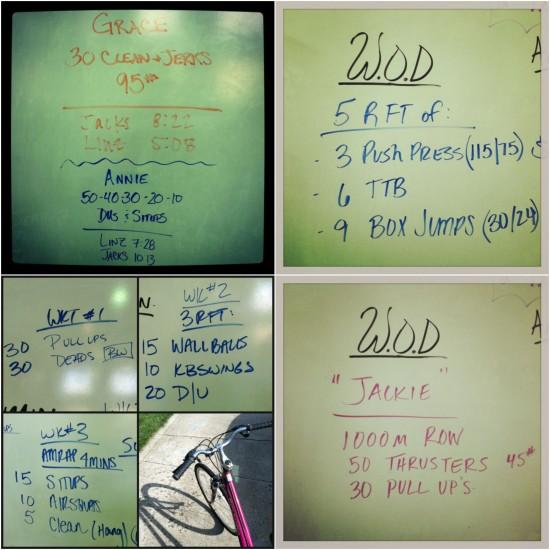 GRACE
30 CLEAN + JERKS
95#
JACKS 8:22
LINZ 5:08
ANNIE
50-40-30-20-10
DUs & SITUPS
LINZ 7:28
JACKS 10:13
W.O.D
5 RFT of:
- 3 PUSH PRESS (115/75)
- 6 TTB
- 9 BOX JUMPS (30/24)
WKT #1
30 PULL UPS
30 DEADS BW
WK #2
3 RFT:
15 WALLBALLS
10 KBSWINGS
20 D/U
WK #3
AMRAP 4 MINS
15 SITUPS
10 AIRSQUATS
5 Clean (Hang)
W.O.D
"JACKIE"
1000m ROW
50 THRUSTERS 45#
30 PULL UP'S